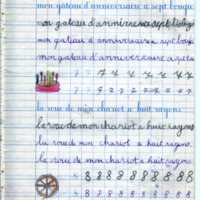 mon gâteau d'anniversaire a sept bougie
mon gateau d'anniversaire a sept
mon gateau d'anniversaire a sept
mon gateau d'anniversaire a sept
7 7 7 7 7 7 7 7 7 7
la roue de mon chariot a huit rayons
la roue de mon chariot a huit rayons
la roue de mon chariot a huit rayons.
la roue de mon chariot a huit rayons
8 8 8 8 8 8 8 8 8 8
8 8 8 8 8 8 8 8 8